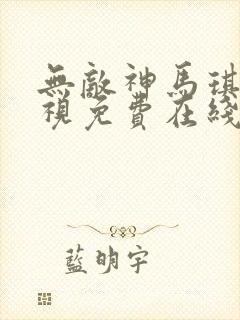 無敵神馬琪
視免費在綫
藍明宇